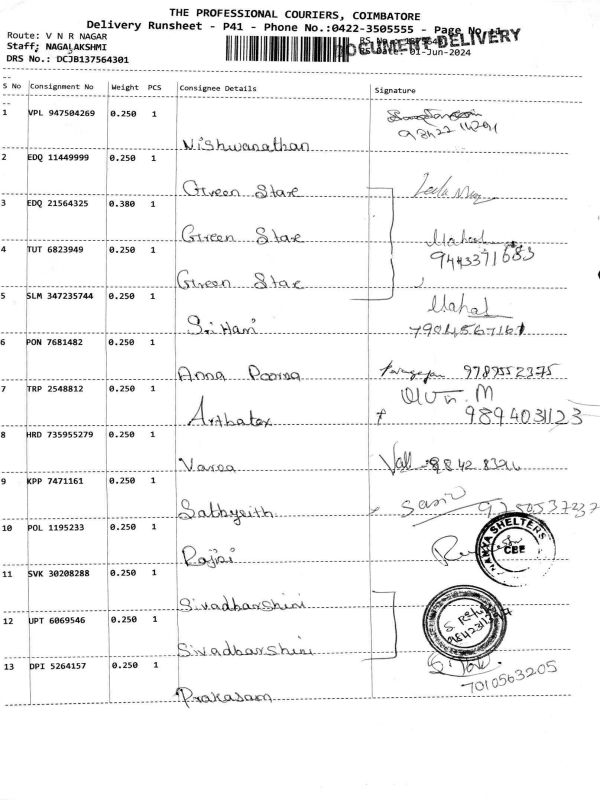 THE PROFESSIONAL COURIERS, COIMBATORE
Delivery Runsheet - P41 - Phone No.:0422-3505555 - Page No.:1
Route: V N R NAGAR
Staff: NAGALAKSHMI
DOCUMENT DELIVERY
DRS No.: DCJB137564301
Date: 01-Jun-2024
S No Consignment No Weight PCS Consignee Details Signature
1 VPL 947504269 0.250 1
Vishwanathan
2 EDQ 11449999 0.250 1
Green Star
3 EDQ 21564325 0.380 1
Green Star Mahesh
9443371683
4 TUT 6823949 0.250 1
Green Star
5 SLM 347235744 0.250 1 Mahal
Sri Hari 7904567161
6 PON 7681482 0.250 1
Anna Poorna 9789552375
7 TRP 2548812 0.250 1 M
Arthatex 9894031123
8 HRD 735955279 0.250 1
Varoa
9 KPP 7471161 0.250 1
Sabbyrith
10 POL 1195233 0.250 1
Rajsi
NAVYA SHELTERS
CBE
11 SVK 30208288 0.250 1
Sivadharshini
12 UPT 6069546 0.250 1
Sivadharshini
13 DPI 5264157 0.250 1
7010563205
Prakasam